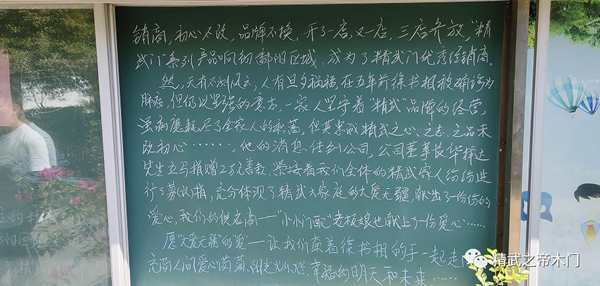 销商，初心不改，品牌不换，开了一店，又一店，三店齐放，"精
武门"系列产品响彻郫旧区域，成为了精武门优秀经销商。
然，天有不测风云，人有旦夕祸福，在五年前徐书相被确诊为
肺癌，但仍以坚强的意志，一家人坚守着"精武"品牌的经营，
虽病魔耗尽了全家人的积蓄，但其忠诚精武之心、之志、之品未
改初心……，他的消息传到公司，公司董事长华择
先生立马捐赠2万元善款，紧接着我们全体的精武家人纷纷进
行了募捐，充分体现了精武大家庭的大爱无疆，献出了一份份的
爱心，我们的供应商——"小小画"老板娘也献上了一份爱心……
愿大爱无疆的爱——让我们牵着徐书相的手一起走
人间爱心
幸福的明天和未来……
精武之帝木门